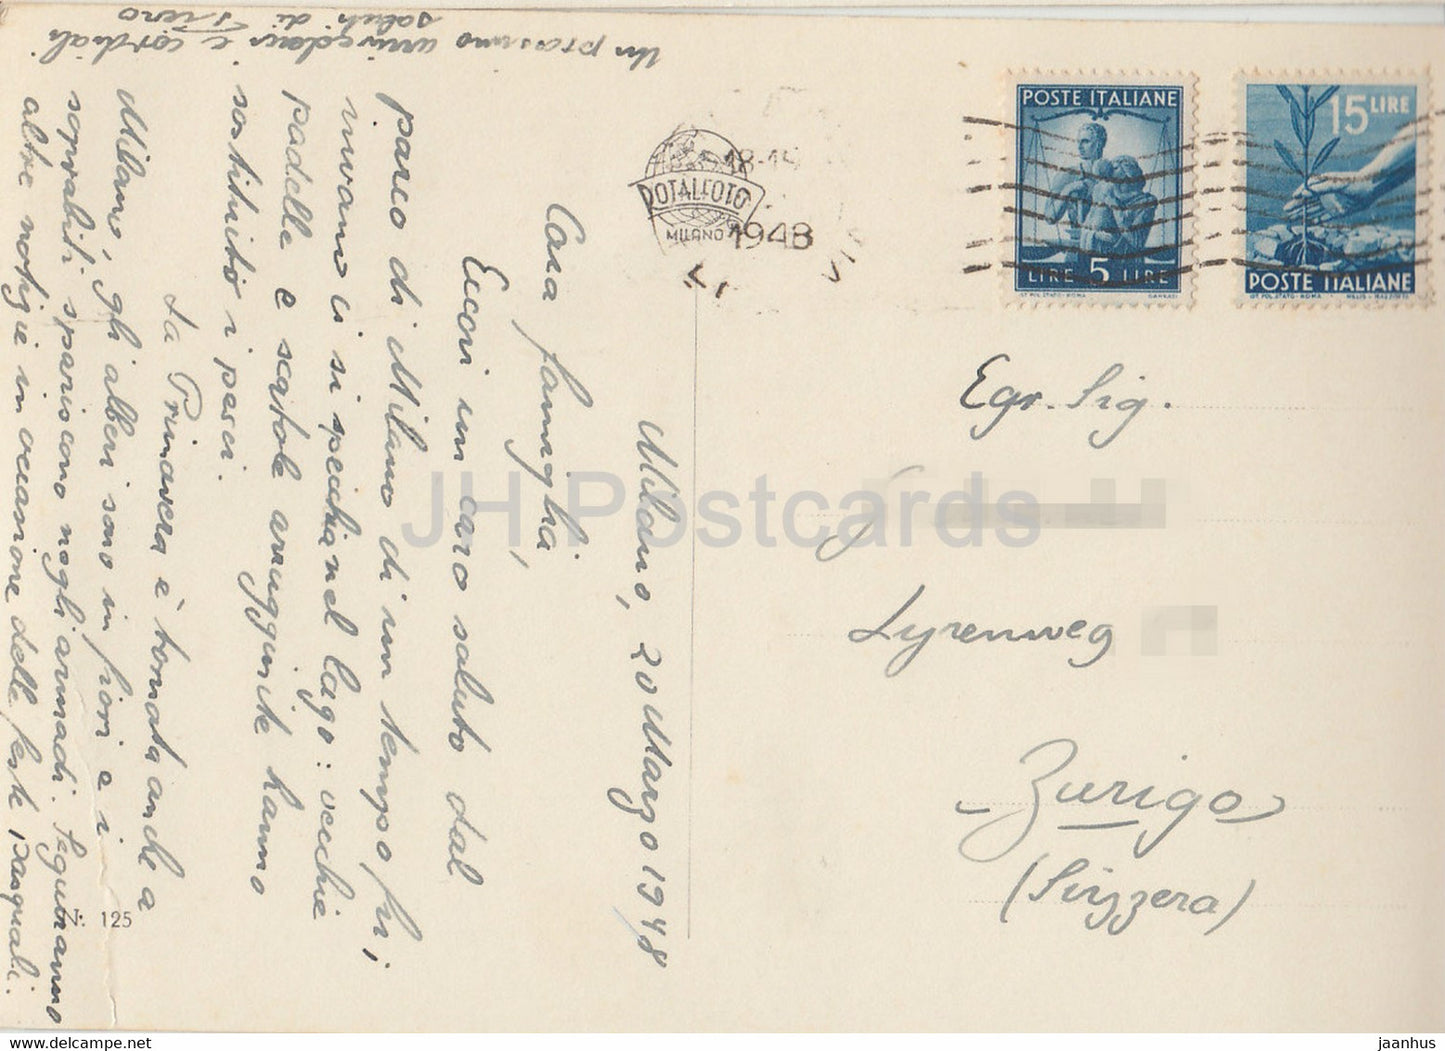 Milano, 20 Marzo 1948
Cara famiglia,
Eccovi un caro saluto dal
parco di Milano di un tempo fui
invano ci si specchia nel lago: vecchie
padelle e scatole arrugginite hanno
sostituito i pesci.
La Primavera è tornata anche a
Milano, gli alberi sono in fiori e i
soprabiti spariscono negli armadi. Seguiranno
altre notizie in occasione delle feste Pasquali.
Un prossimo arrivederci e cordiali
saluti di Piero
N: 125
ROTALFOTO
MILANO
18-19
1948
POSTE ITALIANE
LIRE 5 LIRE
IST. POL. STATO - ROMA
15 LIRE
POSTE ITALIANE
IST. POL. STATO - ROMA
Egr. Sig.
Lyrenweg
Zurigo
(Svizzera)
JH Postcards
jaanhus.ee